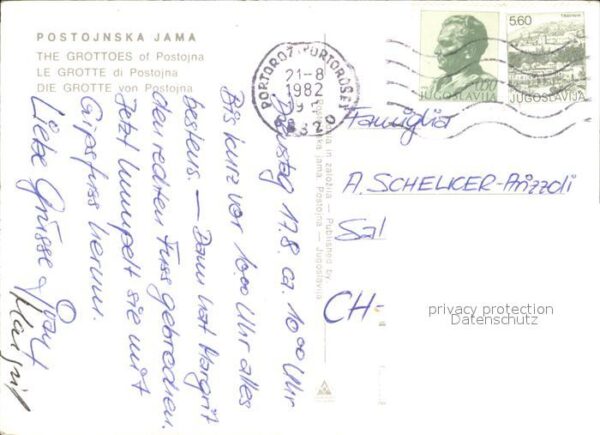 POSTOJNSKA JAMA
THE GROTTOES of Postojna
LE GROTTE di Postojna
DIE GROTTE von Postojna
PORTOROŽ-PORTOROSE
21-8
1982
JUGOSLAVIJA
5.60
JUGOSLAVIJA
Dienstag 17.8. ca. 10 00 Uhr
Bis kurz vor 10.00 Uhr alles
bestens. — Dann hat Margrit
den rechten Fuss gebrochen.
Jetzt humpelt sie mit
Gipsfuss herum.
Liebe Grüsse
Margrit
in založila — Published by
jama Postojna — Jugoslavija
Famiglia
A. SCHELKER-
Sal
CH-
privacy protection
Datenschutz